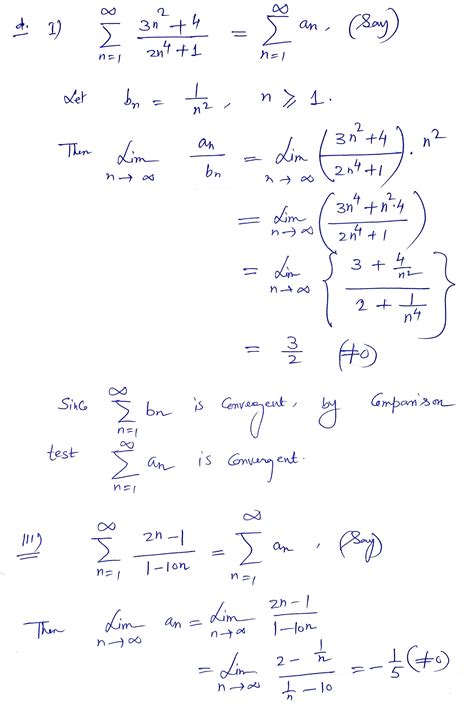 d. I) ∑_{n=1}^{∞} (3n²+4)/(2n⁴+1) = ∑_{n=1}^{∞} an, (Say)
Let bn = 1/n², n ≥ 1.
Then Lim_{n→∞} an/bn = Lim_{n→∞} ((3n²+4)/(2n⁴+1)) · n²
= Lim_{n→∞} ((3n⁴+n²·4)/(2n⁴+1))
= Lim_{n→∞} {(3 + 4/n²)/(2 + 1/n⁴)}
= 3/2 (≠0)
Since ∑_{n=1}^{∞} bn is Convergent, by Comparison
test ∑_{n=1}^{∞} an is Convergent.
III) ∑_{n=1}^{∞} (2n-1)/(1-10n) = ∑_{n=1}^{∞} an, (Say)
Then Lim_{n→∞} an = Lim_{n→∞} (2n-1)/(1-10n)
= Lim_{n→∞} (2 - 1/n)/(1/n - 10) = -1/5 (≠0)